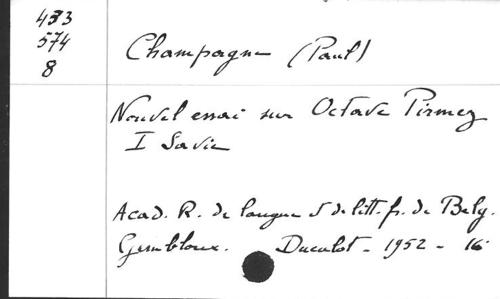 433
574
8
Champagne (Paul)
Nouvel essai sur Octave Pirmez
I Sa vie
Acad. R. de langue & de litt. fr. de Belg.
Gembloux. Duculot - 1952 - 16°